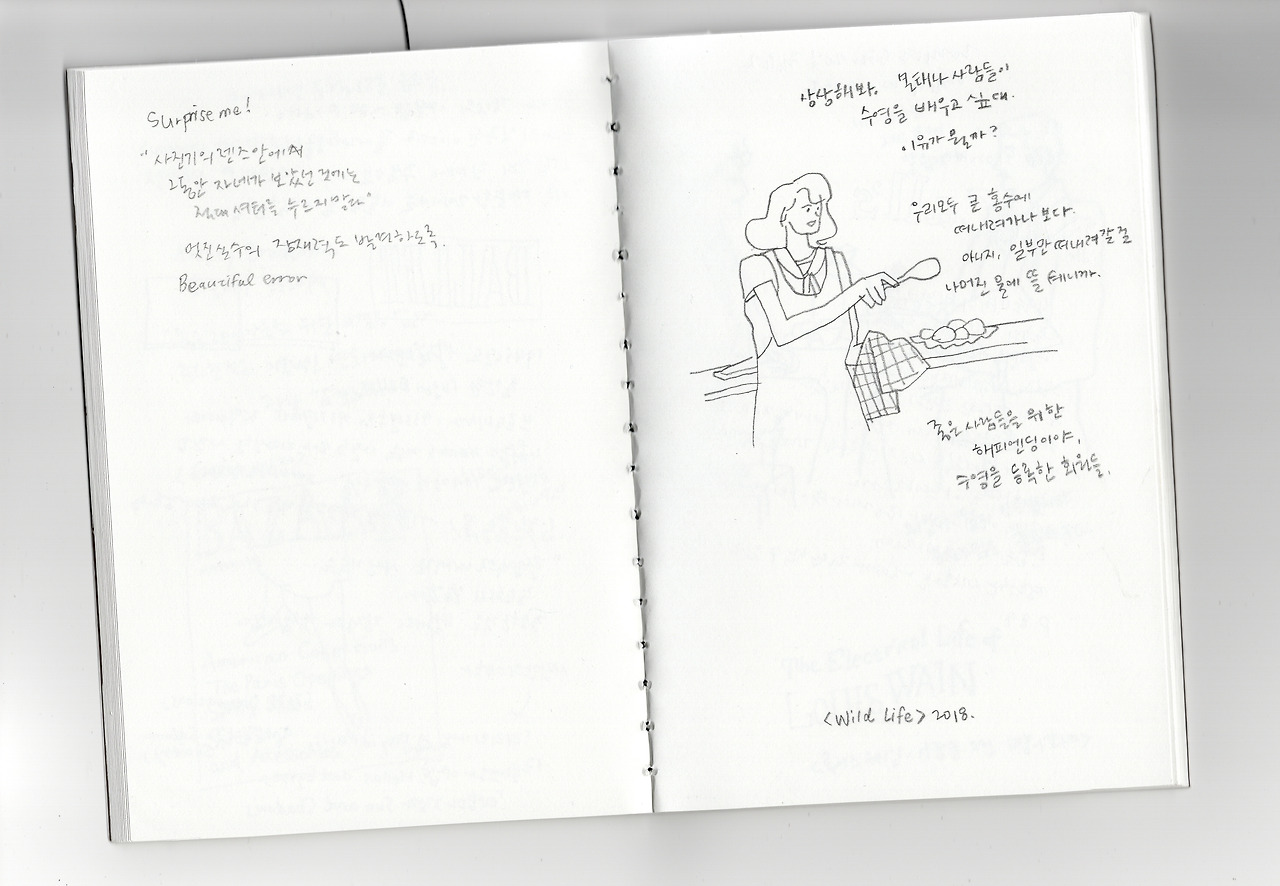 Surprise me!
"사진기의 렌즈 안에서
그동안 자네가 보았던 것에는
절대 셔터를 누르지 말라"
멋진 실수의 잠재력도 발견하도록.
Beautiful error
상상해봐, 몇 태나 사람들이
수영을 배우고 싶대.
이유가 뭘까?
우리모두 곧 홍수에
떠내려가나 보다.
아니지, 일부만 떠내려갈 걸
나머진 물에 뜰 테니까.
좋은 사람들을 위한
해피엔딩이야,
수영을 등록한 회원들.
<Wild Life> 2018.